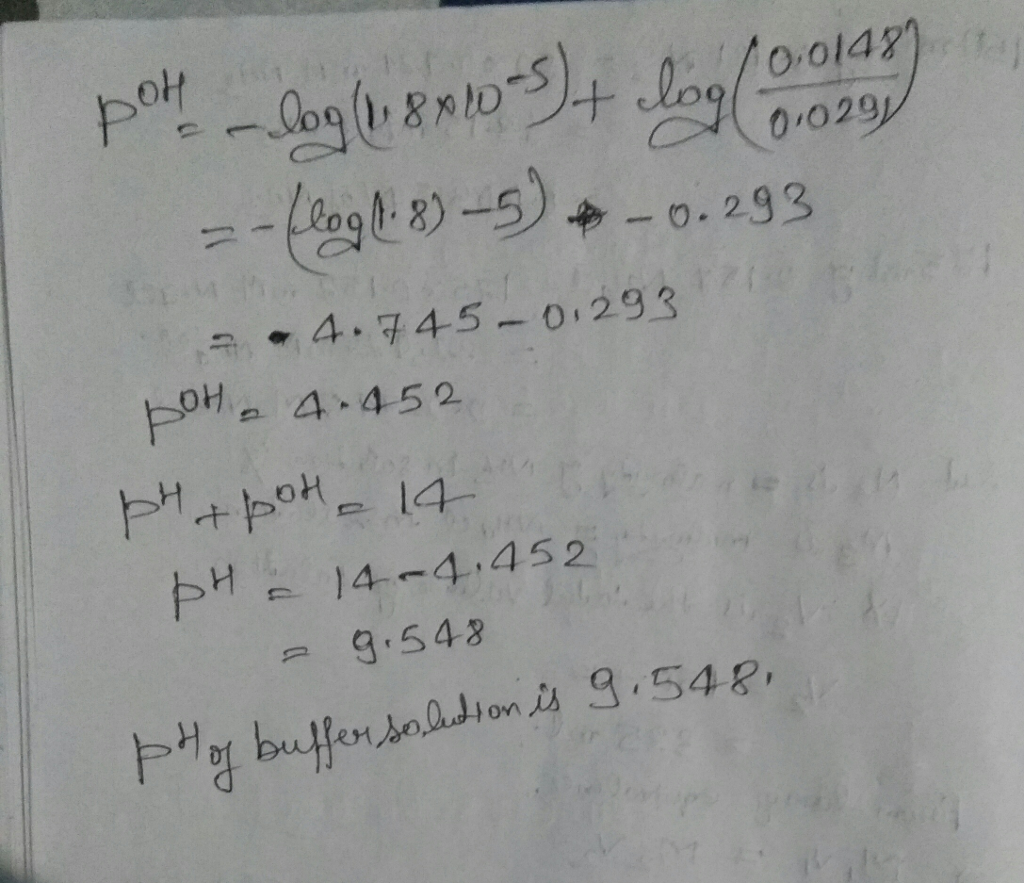 pOH = - log(1.8×10-5) + log(0.0148/0.0291)
= -(log(1.8) -5) - 0.293
= 4.745 - 0.293
pOH = 4.452
pH + pOH = 14
pH = 14 - 4.452
= 9.548
pH of buffer solution is 9.548.